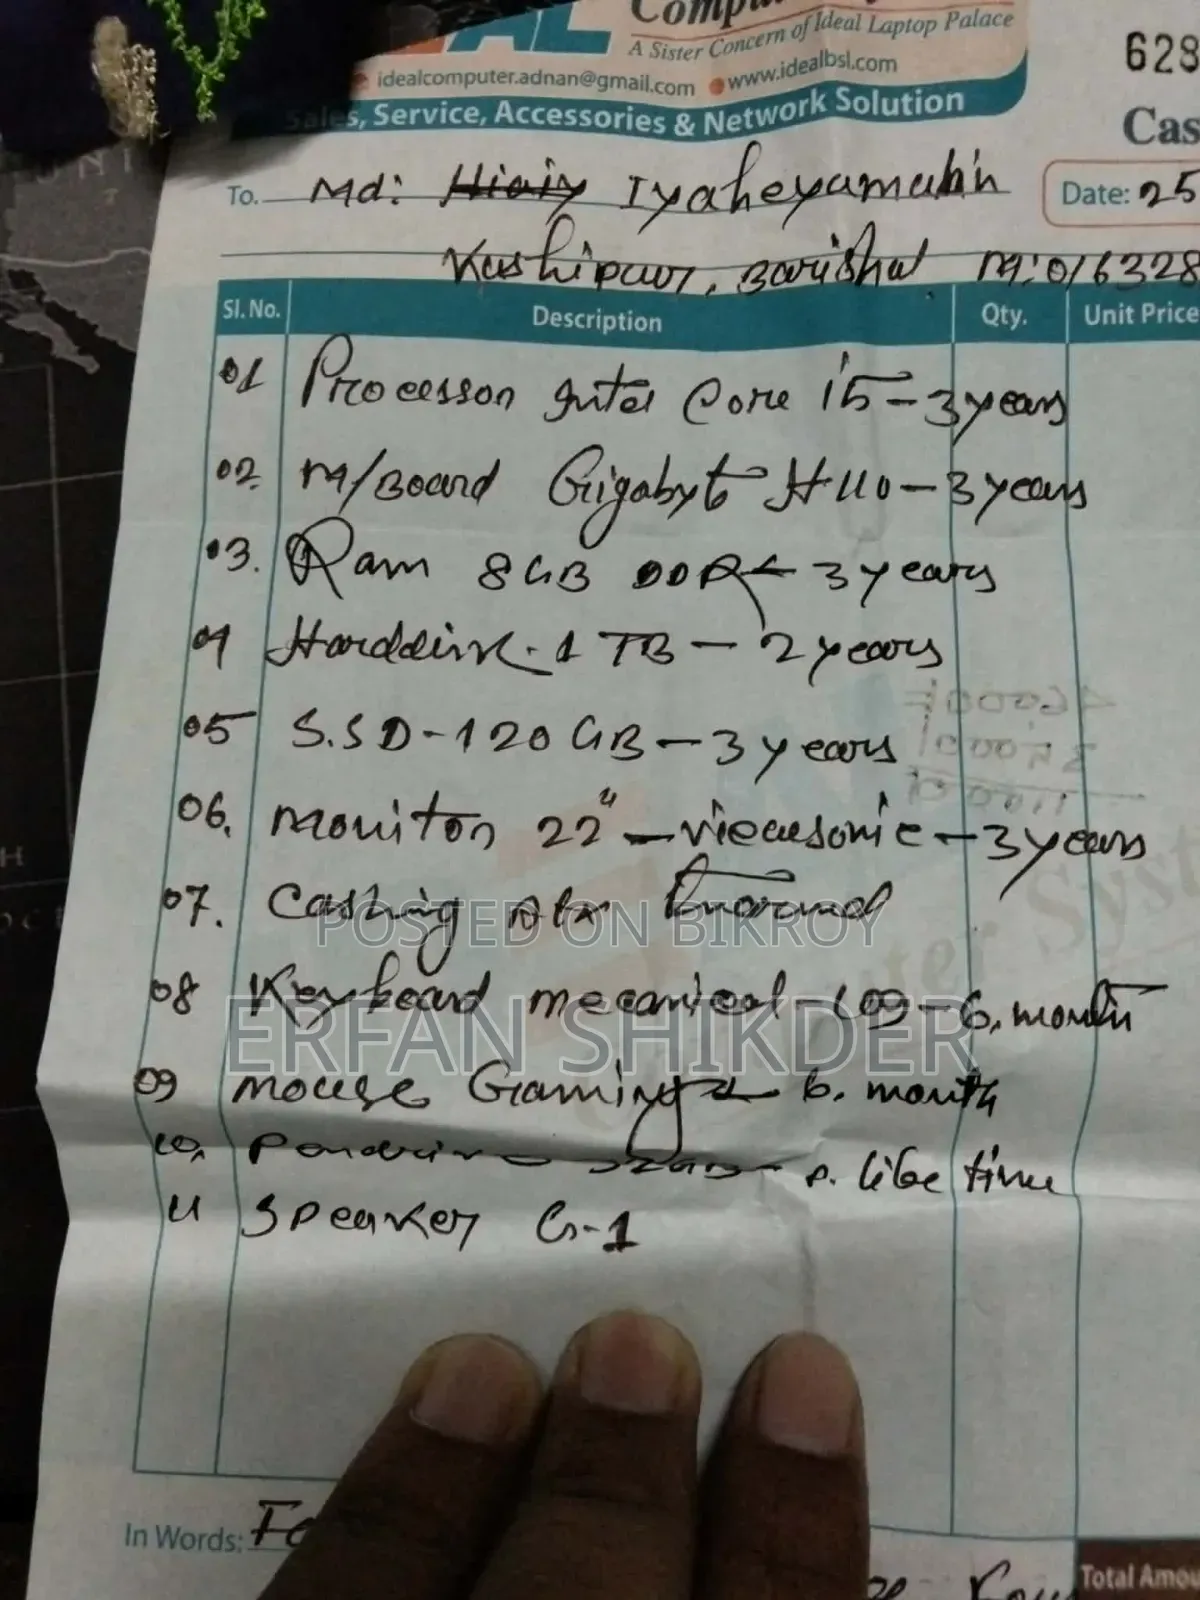 Comp
A Sister Concern of Ideal Laptop Palace
idealcomputer.adnan@gmail.com www.idealbsl.com
Sales, Service, Accessories & Network Solution
628
Cas
To. Md: Iyaheyamahin
Date: 25
Kashipur, Barishal M: 016328
Sl. No. Description Qty. Unit Price
01 Processor Intel Core i5 - 3 years
02. M/Board Gigabyte H110 - 3 years
03. Ram 8GB DDR4 - 3 years
04 Harddisk. 1 TB - 2 years
05 S.SD - 120 GB - 3 years
06. Monitor 22" - viewsonic - 3 years
07. Cashing Atx
POSTED ON BIKROY
08 Keyboard mecanical - - 6. month
ERFAN SHIKDER
09 mouse Gaming - 6. month
10. Pendrive 32GB - P. life time
11 Speaker G-1
In Words:
Total Amou